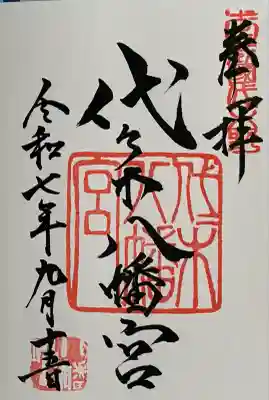 奉拝
代々木八幡宮
令和七年九月
代々木
八幡
宮